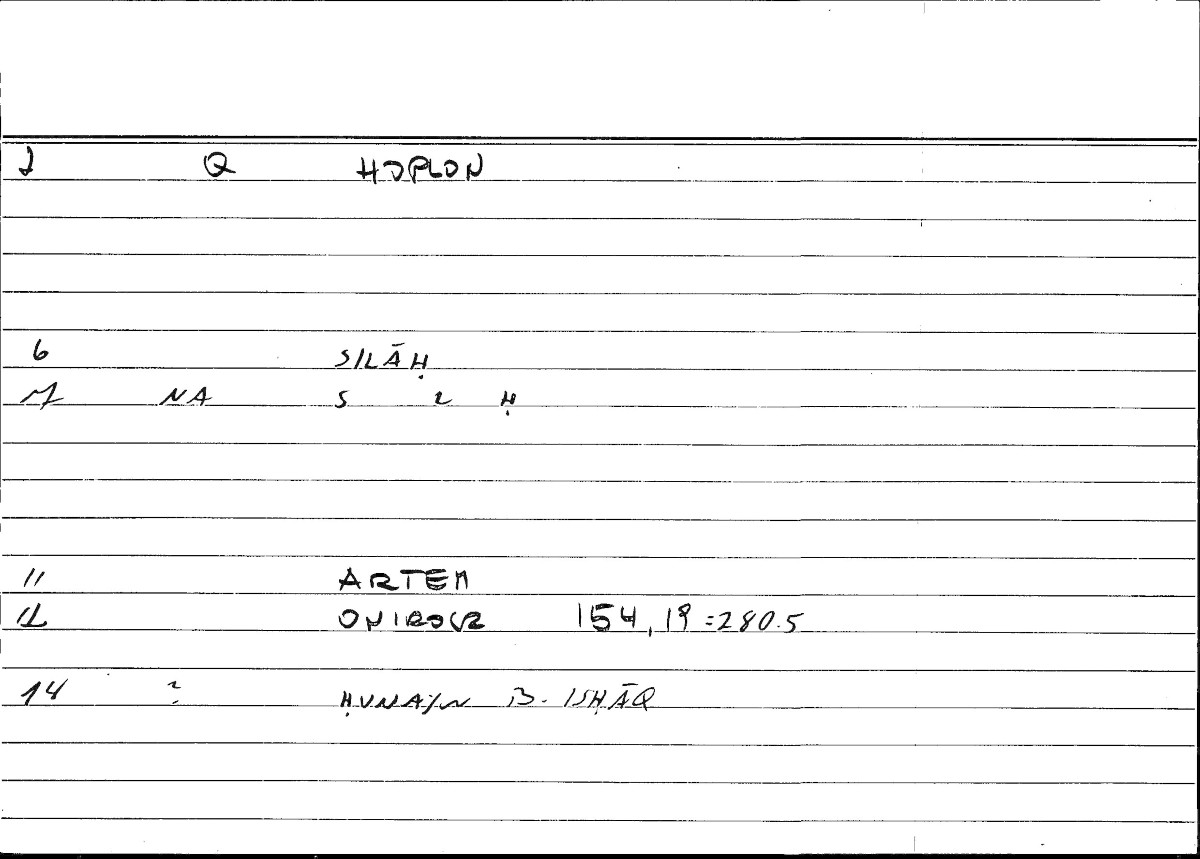 1 Q HOPLON
6 SILĀḤ
7 NA S L Ḥ
11 ARTEM
12 ONIROCR 154,19=280.5
14 ? ḤUNAYN B. ISḤĀQ